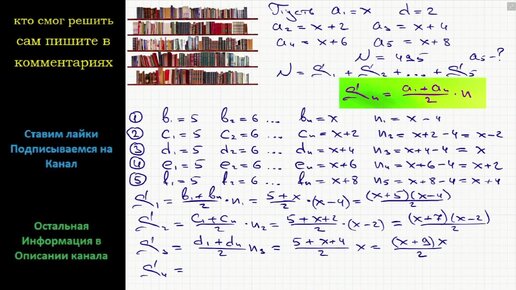 кто смог решить
сам пишите в
комментариях
Ставим лайки
Подписываемся на
Канал
Остальная
Информация в
Описании канала
Пусть a₁ = x d = 2
a₂ = x+2 a₃ = x+4
a₄ = x+6 a₅ = x+8
N = 495 a₅ - ?
N = S₁ + S₂ + ... + S₅
Sₙ = (a₁+aₙ)/2 · n
① b₁ = 5 b₂ = 6 ... bₙ = x n₁ = x - 4
② c₁ = 5 c₂ = 6 ... cₙ = x+2 n₂ = x+2-4 = x-2
③ d₁ = 5 d₂ = 6 ... dₙ = x+4 n₃ = x+4-4 = x
④ e₁ = 5 e₂ = 6 ... eₙ = x+6 n₄ = x+6-4 = x+2
⑤ h₁ = 5 h₂ = 6 ... hₙ = x+8 n₅ = x+8-4 = x+4
S₁ = (b₁+bₙ)/2 · n₁ = (5+x)/2 · (x-4) = (x+5)(x-4)/2
S₂ = (c₁+cₙ)/2 · n₂ = (5+x+2)/2 · (x-2) = (x+7)(x-2)/2
S₃ = (d₁+dₙ)/2 n₃ = (5+x+4)/2 x = (x+9)x/2
S₄ =